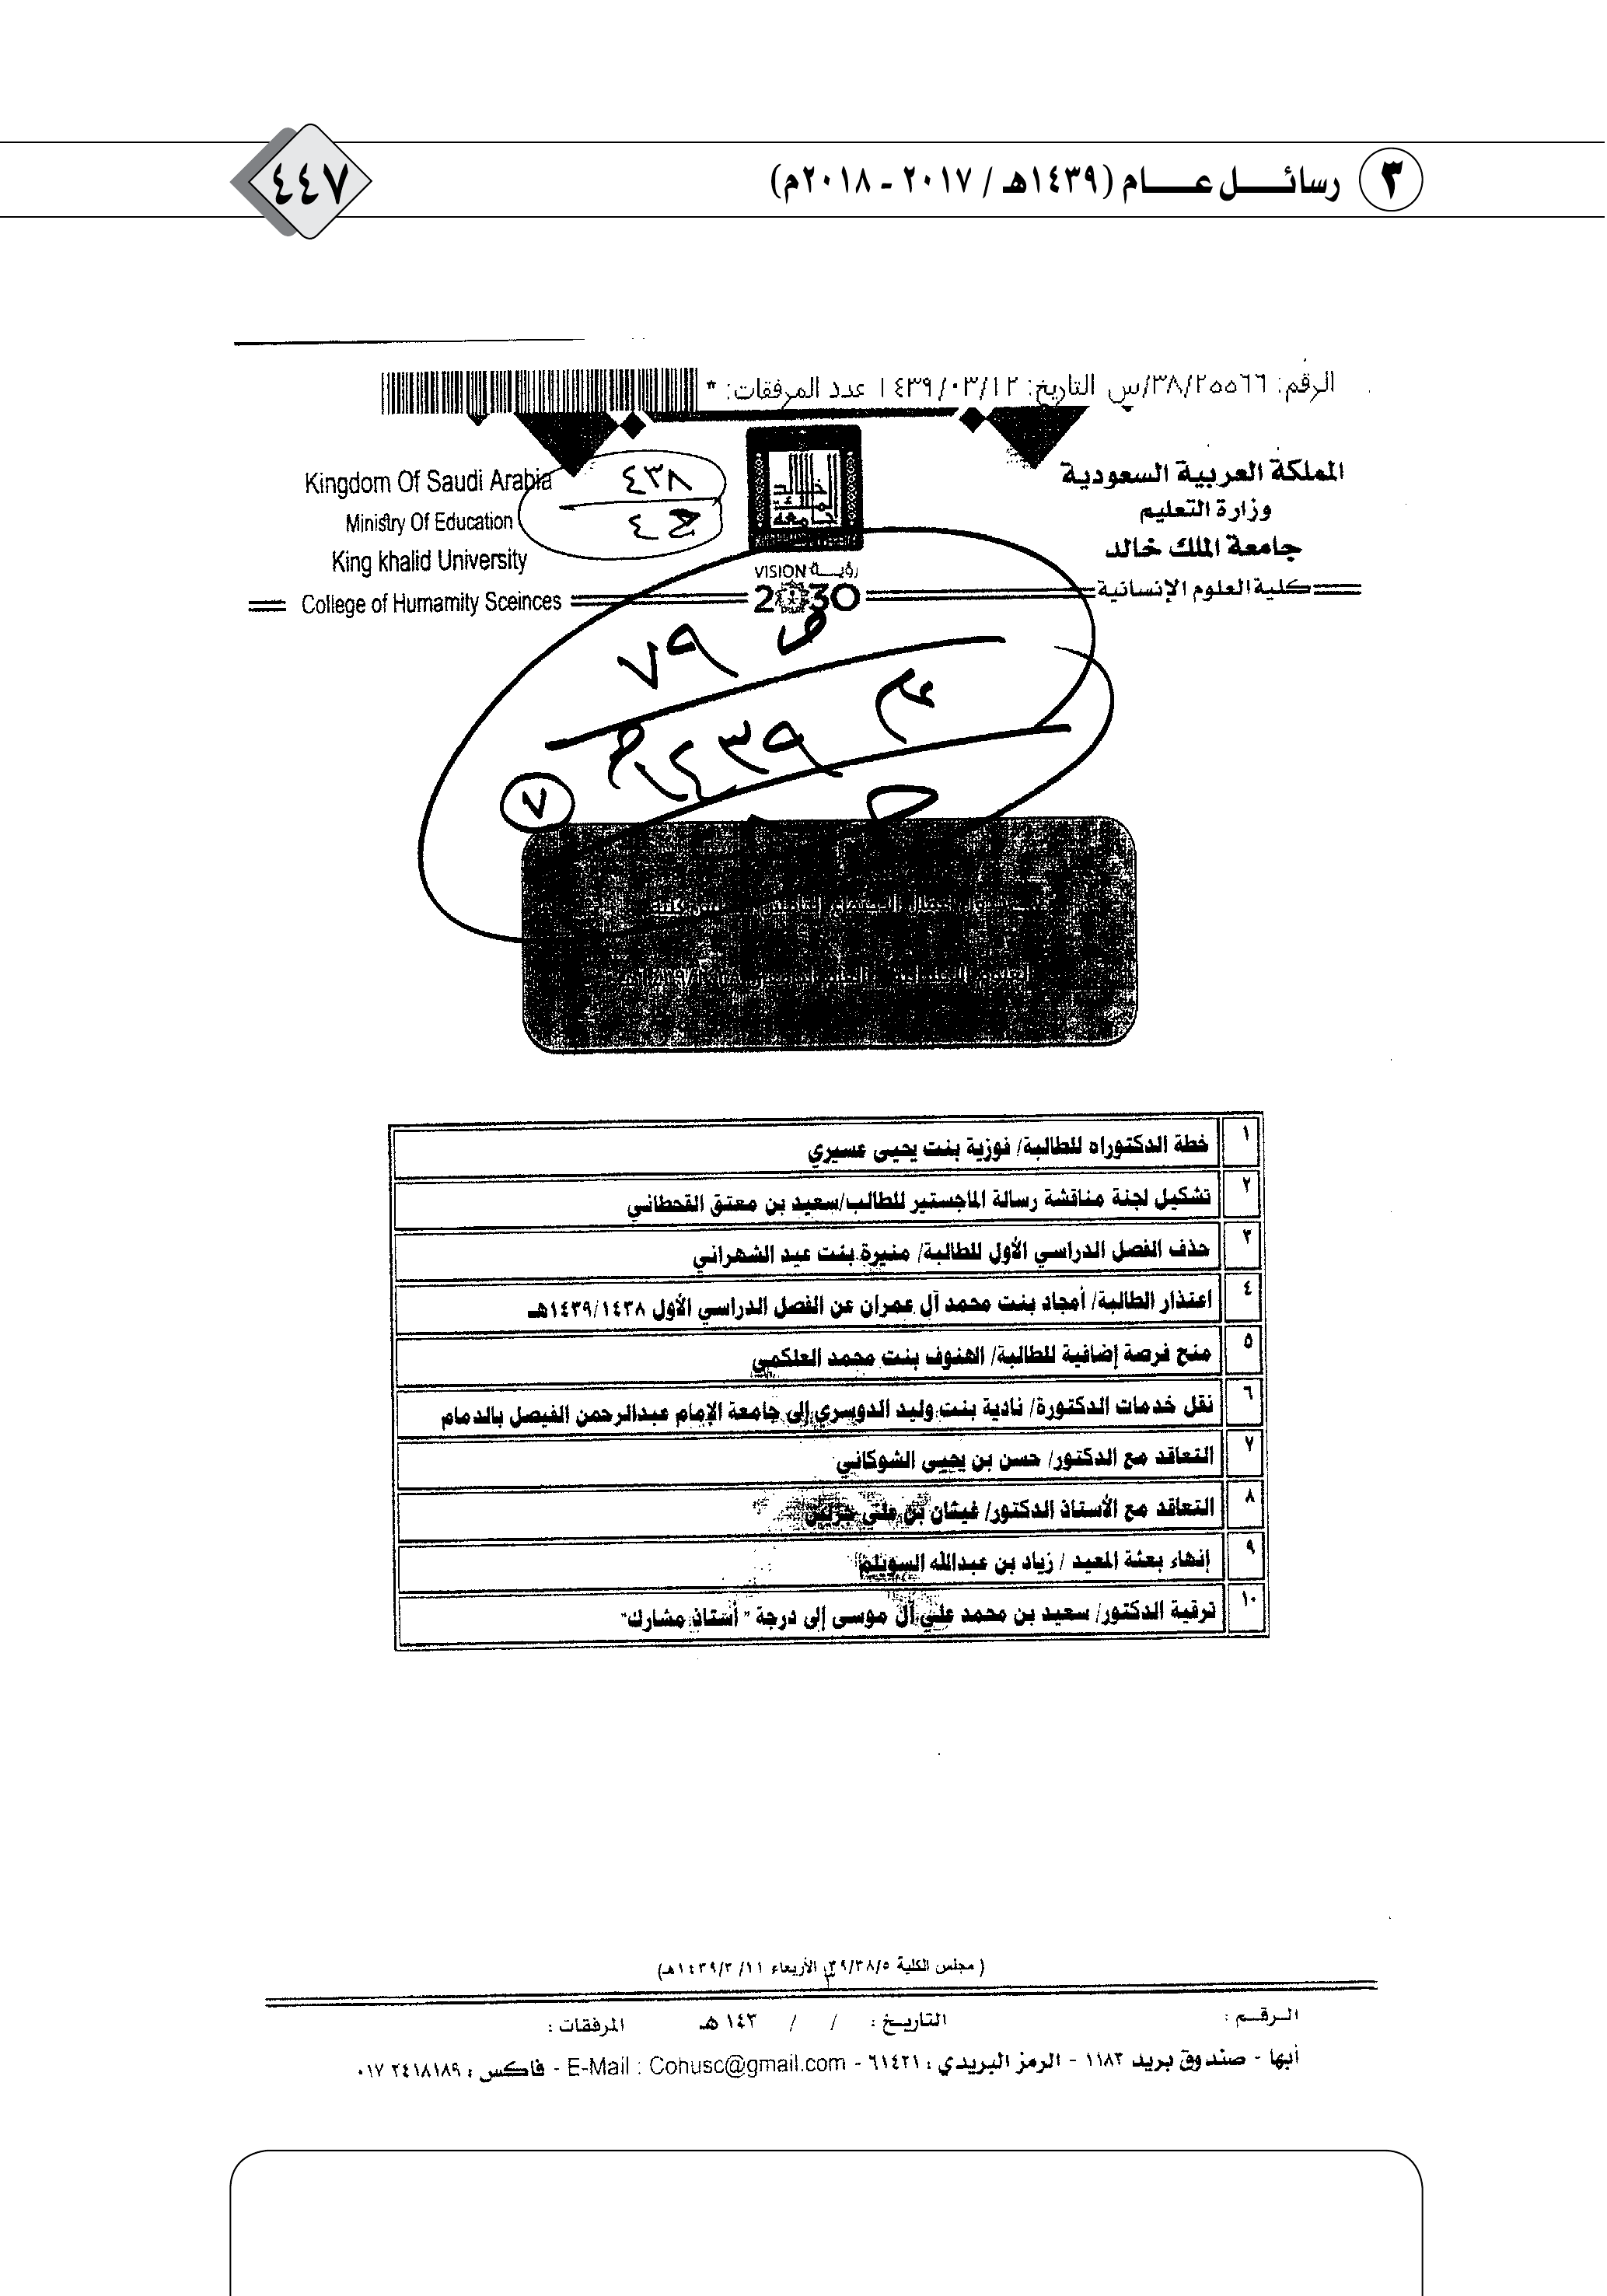 ٣ رسائل عام (١٤٣٩هـ / ٢٠١٧ - ٢٠١٨م)
٤٤٧
الرقم: ٣٨/٢٥٥٦٦/س التاريخ: ١٤٣٩/٠٣/١٢ عدد المرفقات: *
المملكة العربية السعودية
وزارة التعليم
جامعة الملك خالد
كلية العلوم الإنسانية
رؤيـــة VISION
2030
Kingdom Of Saudi Arabia
Ministry Of Education
King khalid University
College of Humamity Sceinces
٤٣٨
ج ٤
ص ٧٩
٤٣٩
٧
١ خطة الدكتوراه للطالبة/ فوزية بنت يحيى عسيري
٢ تشكيل لجنة مناقشة رسالة الماجستير للطالب/سعيد بن معتق القحطاني
٣ حذف الفصل الدراسي الأول للطالبة/ منيرة بنت عيد الشهراني
٤ اعتذار الطالبة/ أمجاد بنت محمد آل عمران عن الفصل الدراسي الأول ١٤٣٩/١٤٣٨هـ
٥ منح فرصة إضافية للطالبة/ الهنوف بنت محمد العلكمي
٦ نقل خدمات الدكتورة/ نادية بنت وليد الدوسري إلى جامعة الإمام عبدالرحمن الفيصل بالدمام
٧ التعاقد مع الدكتور/ حسن بن يحيى الشوكاني
٨ التعاقد مع الأستاذ الدكتور/ غيثان بن علي جريس
٩ إنهاء بعثة المعيد / زياد بن عبدالله السويلم
١٠ ترقية الدكتور/ سعيد بن محمد علي آل موسى إلى درجة " أستاذ مشارك"
( مجلس الكلية ٣٩/٣٨/٥، الأربعاء ١٤٣٩/٣/١١هـ)
الـرقـم : التاريـخ : / / ١٤٣ هـ المرفقات :
أبها - صندوق بريد ١١٨٣ - الرمز البريدي : ٦١٤٢١ - E-Mail : Cohusc@gmail.com - فاكس : ٠١٧ ٢٤١٨١٨٩